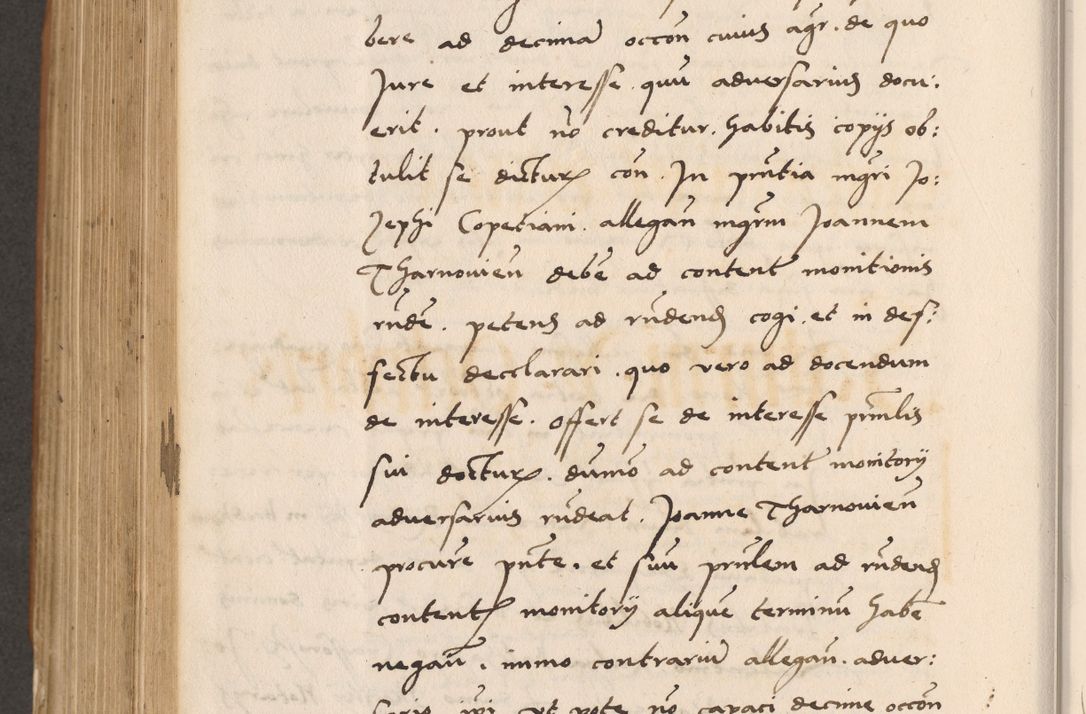 bere ad decimā occōn cuius agr. de quo
Jure et interesse. quū adversarius docu:
erit. prout nō creditur. habitis copijs ob:
tulit se dicturꝝ con. In pn̄tia mgr̄i Jo:
sephi Copeciani. allegan̄ mgr̄m Joannem
Tharnovien̄ debē ad content̄ monitionis
rn̄dē. petens ad rn̄dend cogi. et in def:
fectu decclarari. quo vero ad docendum
de interesse. offert se de interesse prin̄lis
sui docturꝝ. dūmō ad content̄ monitorij
adversarius rn̄deat. Joanne Tharnovien̄
procurē pn̄te. et suū prin̄lem ad rn̄dend
contentꝝ monitorij alique terminū habē
negan̄. immo contrariū allegan̄. adver:
sario ip̄i ut pote nō capaci decime occōn